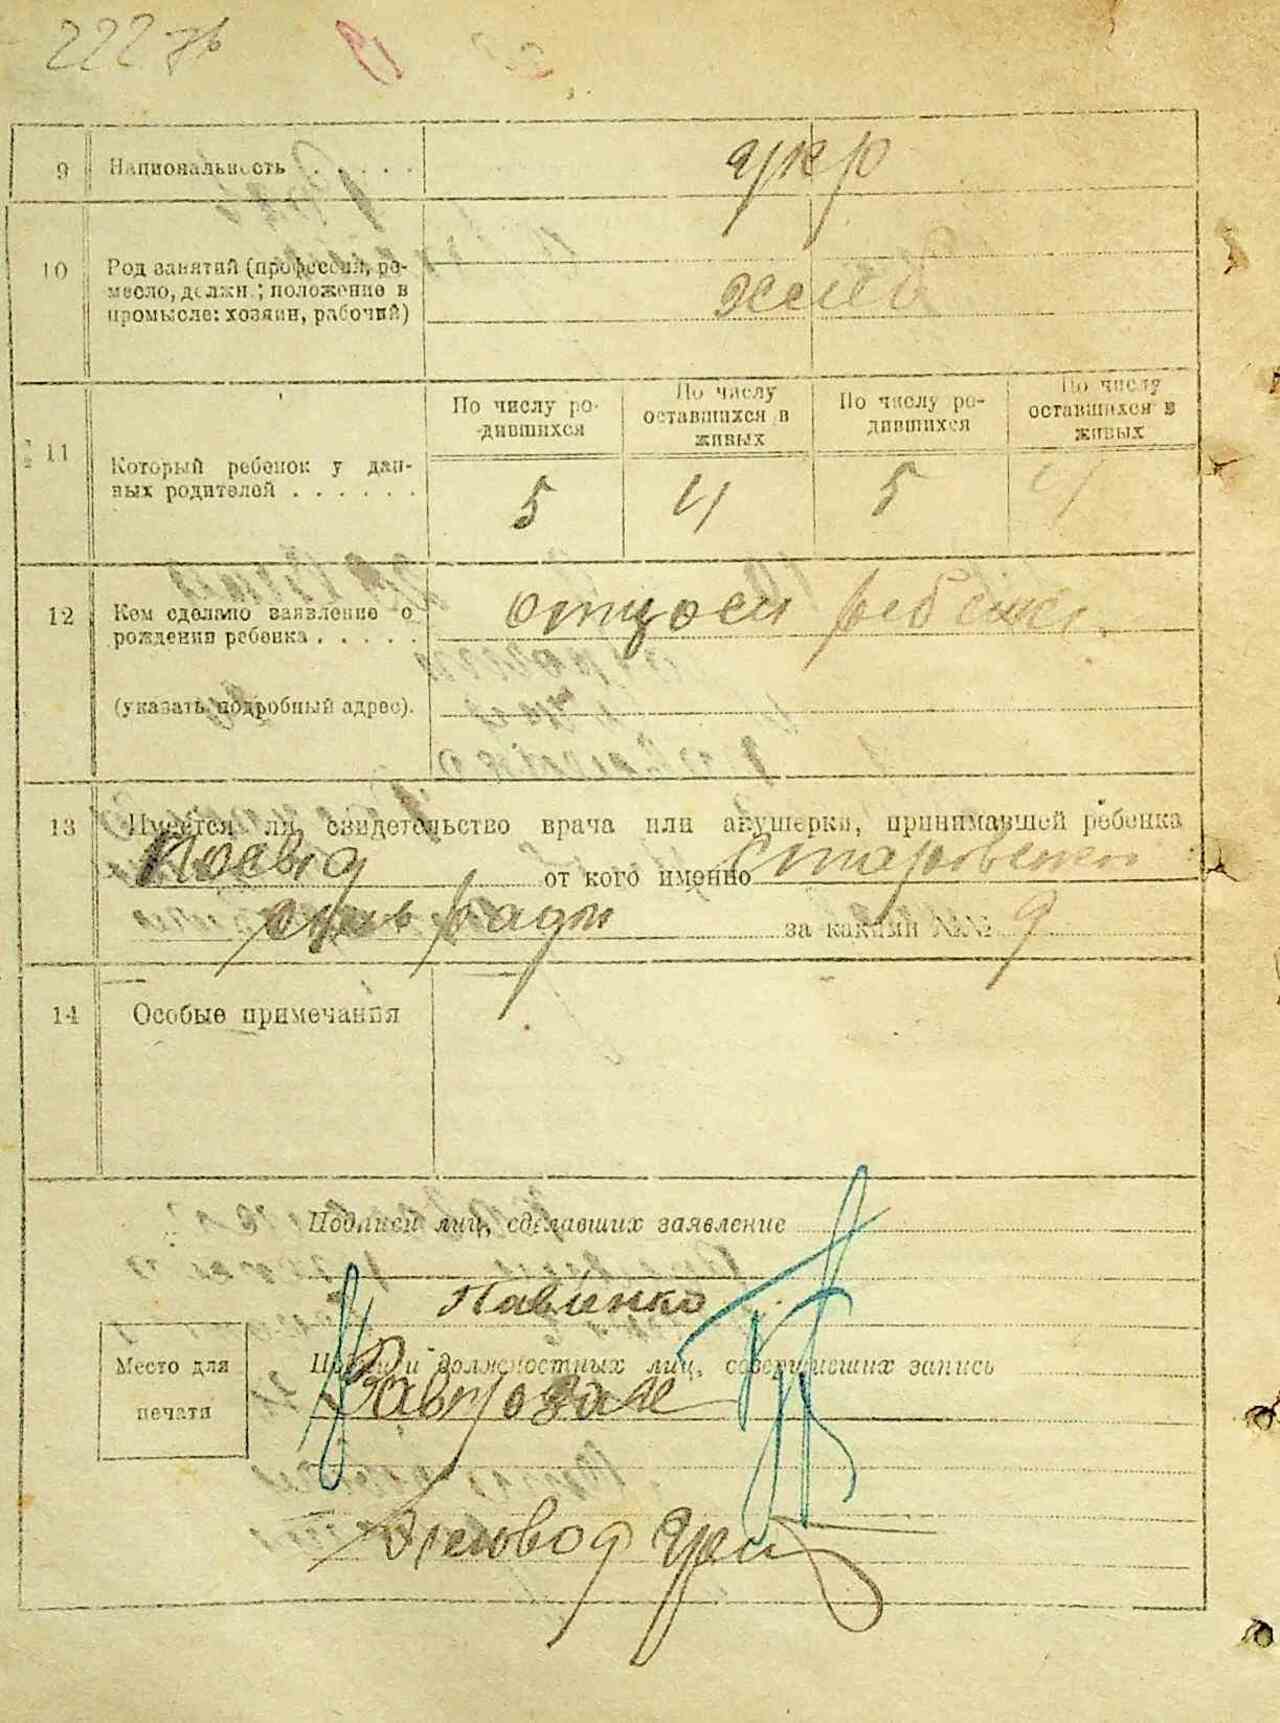 222 зв
9 Национальность . . . . . укр
10 Род занятий (профессия, ре-
месло, должн.; положение в
промысле: хозяин, рабочий)
хлеб
По числу ро-
дившихся
По числу
оставшихся в
живых
По числу ро-
дившихся
По числу
оставшихся в
живых
11 Который ребенок у дан-
ных родителей . . . . . .
5 4 5 4
12 Кем сделано заявление о
рождении ребенка . . . . .
отцом ребенка
(указать подробный адрес).
13 Имеется ли свидетельство врача или акушерки, принимавшей ребенка
от кого именно
ради за какими №№ 9
14 Особые примечания
Подписи лиц, сделавших заявление
Павленко
Место для
печати
Подписи должностных лиц, совершивших запись
Деловод